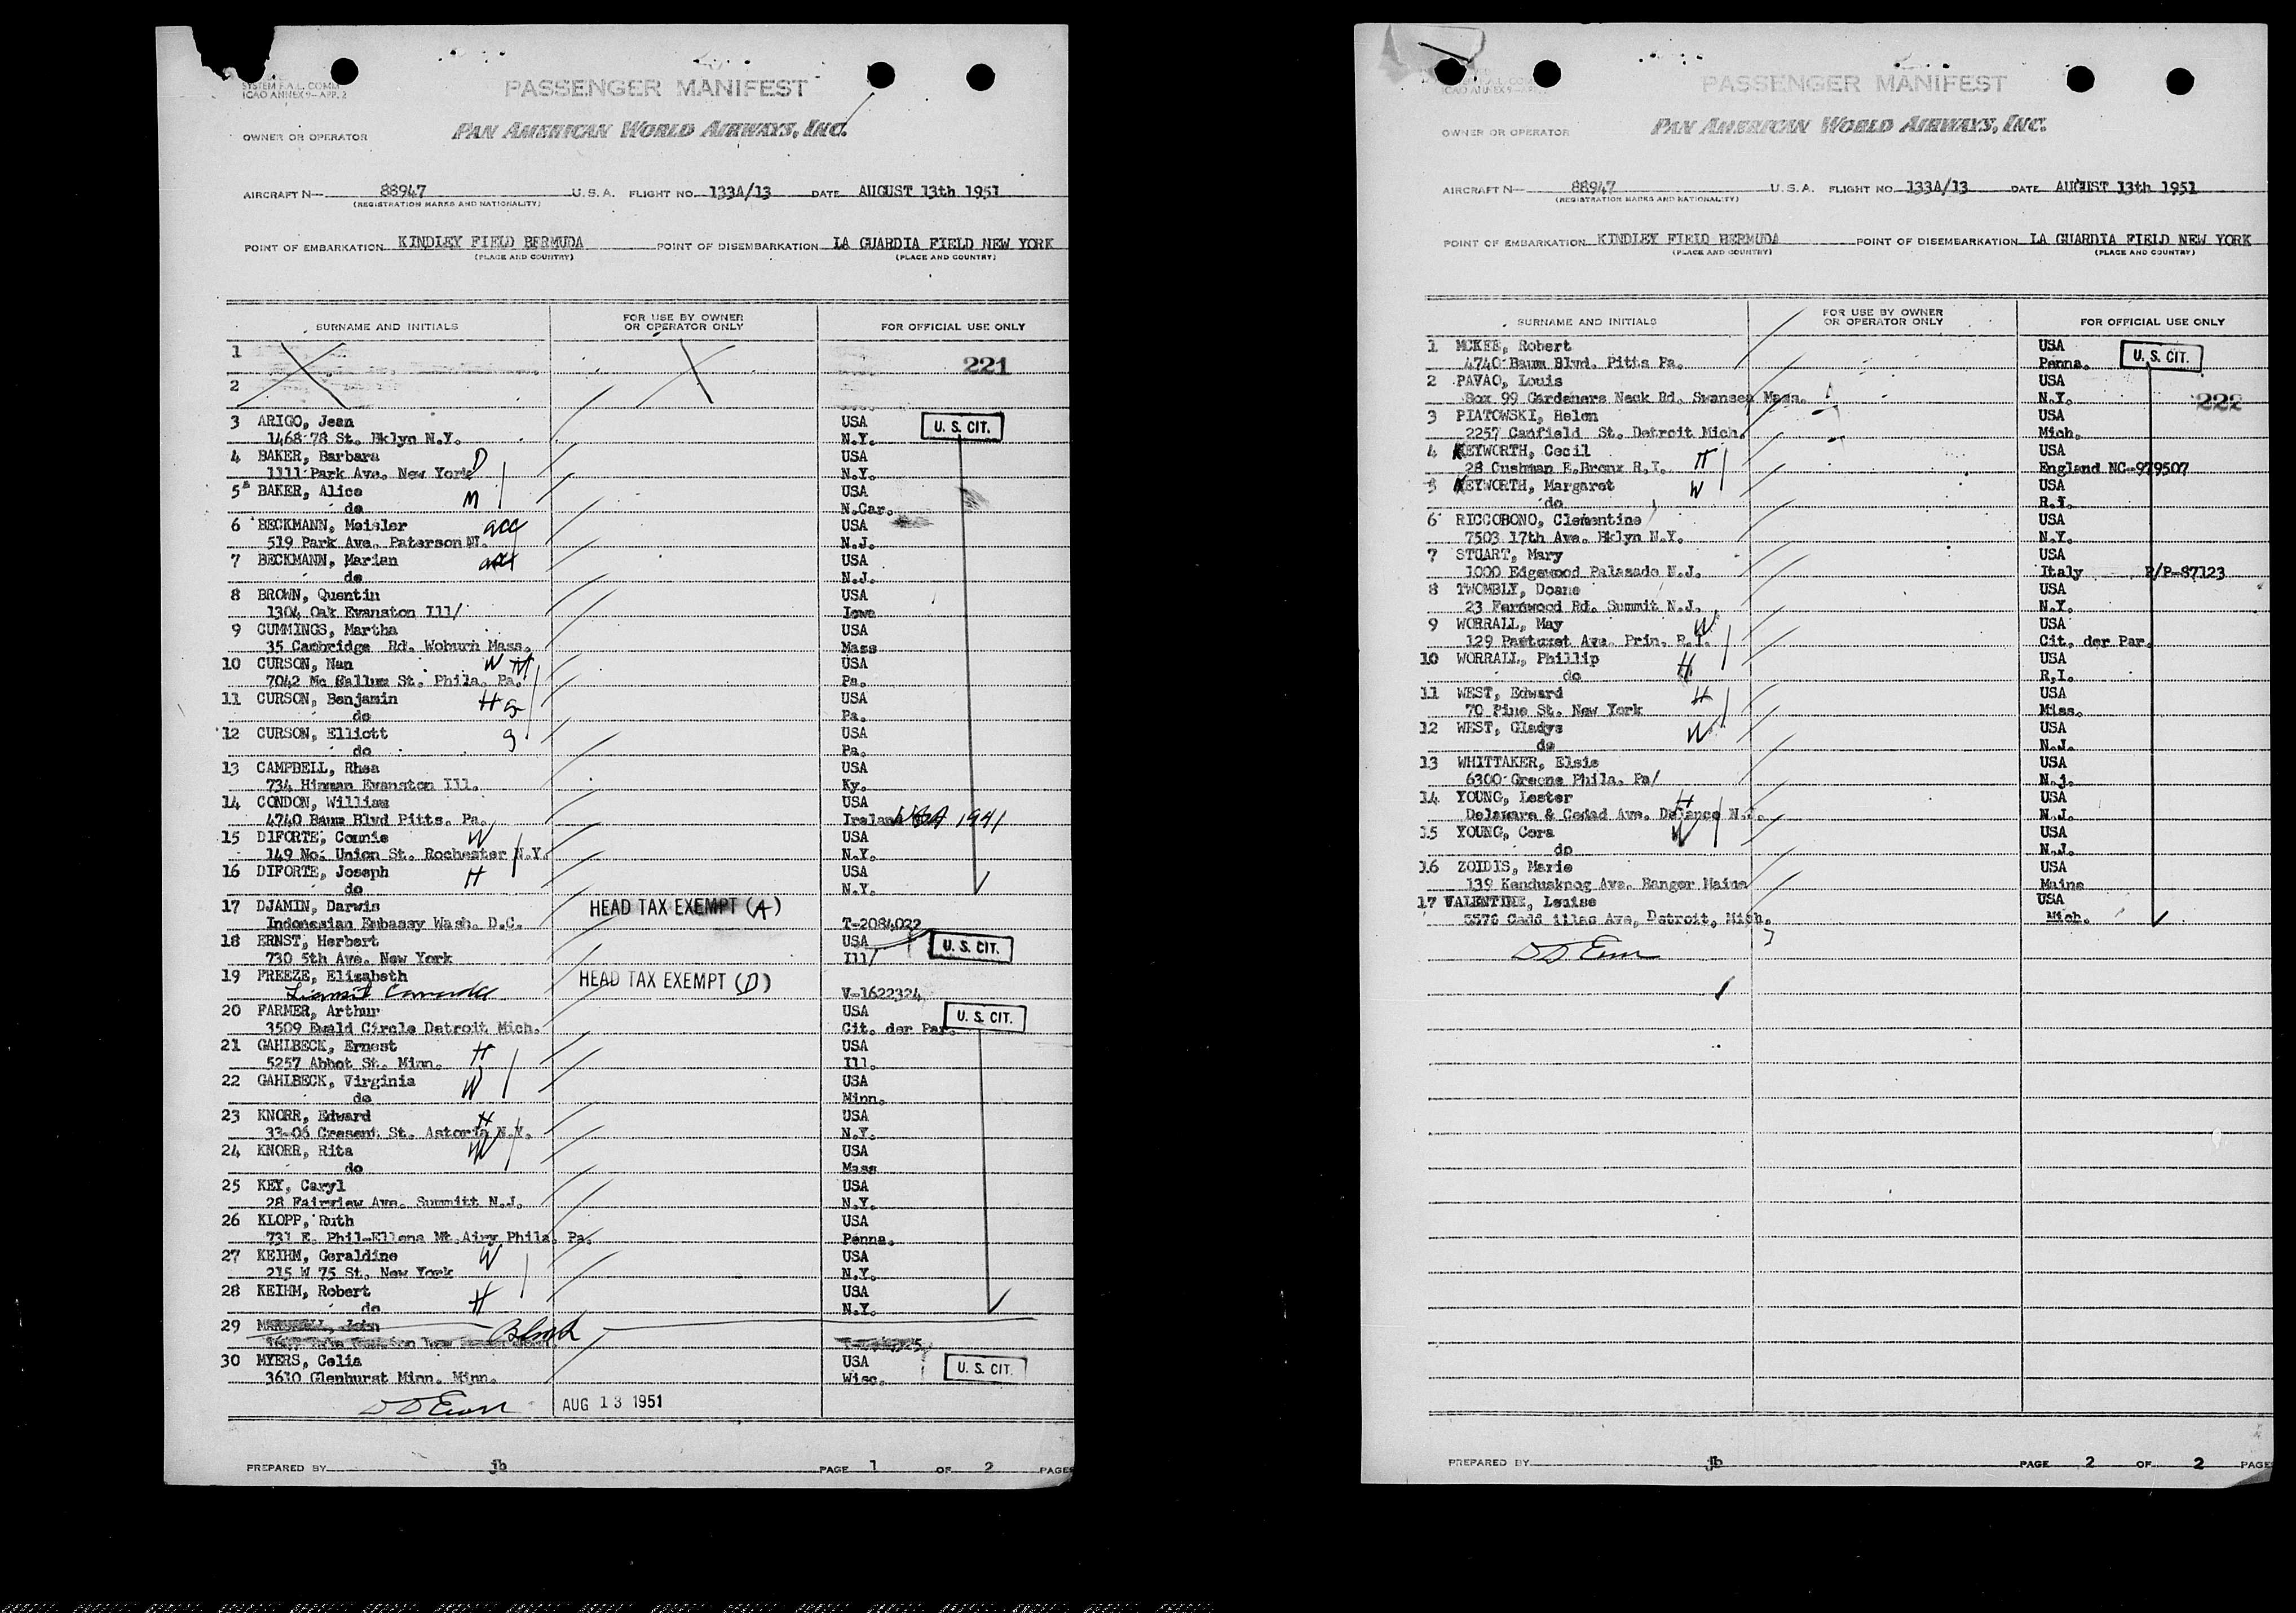 SYSTEM F.A.L. COMM.
ICAO ANNEX 9—APP. 2
PASSENGER MANIFEST
OWNER OR OPERATOR PAN AMERICAN WORLD AIRWAYS, INC.
AIRCRAFT N— 88947 U.S.A. FLIGHT NO. 133A/13 DATE AUGUST 13th 1951
(REGISTRATION MARKS AND NATIONALITY)
POINT OF EMBARKATION KINDLEY FIELD BERMUDA POINT OF DISEMBARKATION LA GUARDIA FIELD NEW YORK
(PLACE AND COUNTRY) (PLACE AND COUNTRY)
SURNAME AND INITIALS FOR USE BY OWNER OR OPERATOR ONLY FOR OFFICIAL USE ONLY
1 221
2
3 ARIGO, Jean USA U. S. CIT.
1468 78 St. Bklyn N.Y. N.Y.
4 BAKER, Barbara D USA
1111 Park Ave. New York N.Y.
5 BAKER, Alice M USA
do N.Car.
6 BECKMANN, Meisler acc USA
519 Park Ave. Paterson NJ. N.J.
7 BECKMANN, Marian acc USA
do N.J.
8 BROWN, Quentin USA
1304 Oak Evanston Ill/ Iowa
9 CUMMINGS, Martha USA
35 Cambridge Rd. Woburn Mass. Mass
10 CURSON, Nan W M USA
7042 Mc Callum St. Phila. Pa. Pa.
11 CURSON, Benjamin H USA
do Pa.
12 CURSON, Elliott S USA
do Pa.
13 CAMPBELL, Rhea USA
734 Hinman Evanston Ill. Ky.
14 CONDON, William USA
4740 Baum Blvd Pitts. Pa. Ireland 1941
15 DIFORTE, Connie W USA
149 No. Union St. Rochester N.Y. N.Y.
16 DIFORTE, Joseph H USA
do N.Y.
17 DJAMIN, Darwis HEAD TAX EXEMPT (A)
Indonesian Embassy Wash. D.C. T-2084022
18 ERNST, Herbert USA U. S. CIT.
730 5th Ave. New York Ill/
19 FREEZE, Elizabeth HEAD TAX EXEMPT (D)
Transit Canada V-1622324
20 FARMER, Arthur USA U. S. CIT.
3509 Ewald Circle Detroit Mich. Cit. der Par.
21 GAHLBECK, Ernest H USA
5257 Abbot St. Minn. Ill.
22 GAHLBECK, Virginia W USA
do Minn.
23 KNORR, Edward H USA
33-06 Cresent St. Astoria N.Y. N.Y.
24 KNORR, Rita W USA
do Mass
25 KEY, Caryl USA
28 Fairview Ave. Summitt N.J. N.Y.
26 KLOPP, Ruth USA
731 E. Phil-Ellena Mt.Airy Phila. Pa. Penna.
27 KEIHM, Geraldine W USA
215 W 75 St. New York N.Y.
28 KEIHM, Robert H USA
do N.Y.
29 MARSHALL, John
30 MYERS, Celia USA U. S. CIT.
3610 Glenhurst Minn. Minn. Wisc.
AUG 13 1951
PREPARED BY jb PAGE 1 OF 2 PAGES
PASSENGER MANIFEST
OWNER OR OPERATOR PAN AMERICAN WORLD AIRWAYS, INC.
AIRCRAFT N— 88947 U.S.A. FLIGHT NO. 133A/13 DATE AUGUST 13th 1951
(REGISTRATION MARKS AND NATIONALITY)
POINT OF EMBARKATION KINDLEY FIELD BERMUDA POINT OF DISEMBARKATION LA GUARDIA FIELD NEW YORK
(PLACE AND COUNTRY) (PLACE AND COUNTRY)
SURNAME AND INITIALS FOR USE BY OWNER OR OPERATOR ONLY FOR OFFICIAL USE ONLY
1 MCKEE, Robert USA U. S. CIT.
4740 Baum Blvd. Pitts Pa. Penna.
2 PAVAO, Louis USA
Box 99 Gardeners Neck Rd. Swansea Mass. N.Y. 222
3 PIATOWSKI, Helen USA
2257 Canfield St. Detroit Mich. Mich.
4 KEYWORTH, Cecil H USA
28 Cushman E.Bronx R.I. England NC-979507
5 KEYWORTH, Margaret W USA
do R.I.
6 RICCOBONO, Clementine USA
7503 17th Ave. Bklyn N.Y. N.Y.
7 STUART, Mary USA
1000 Edgewood Palasade N.J. Italy P/P-87123
8 TWOMBLY, Doane USA
23 Fernwood Rd. Summit N.J. N.Y.
9 WORRALL, May W USA
129 Pawtuxet Ave. Prin. R.I. Cit. der Par.
10 WORRALL, Phillip H USA
do R.I.
11 WEST, Edward H USA
70 Pine St. New York Miss.
12 WEST, Gladys W USA
do N.J.
13 WHITTAKER, Elsie USA
6300 Greene Phila. Pa/ N.j.
14 YOUNG, Lester H USA
Delaware & Cedad Ave. Delanco N.J. N.J.
15 YOUNG, Cora W USA
do N.J.
16 ZOIDIS, Marie USA
139 Kendusknog Ave. Bangor Maine Maine
17 VALENTINE, Louise USA
Ave, Detroit, Mich. Mich.
PREPARED BY jb PAGE 2 OF 2 PAGES